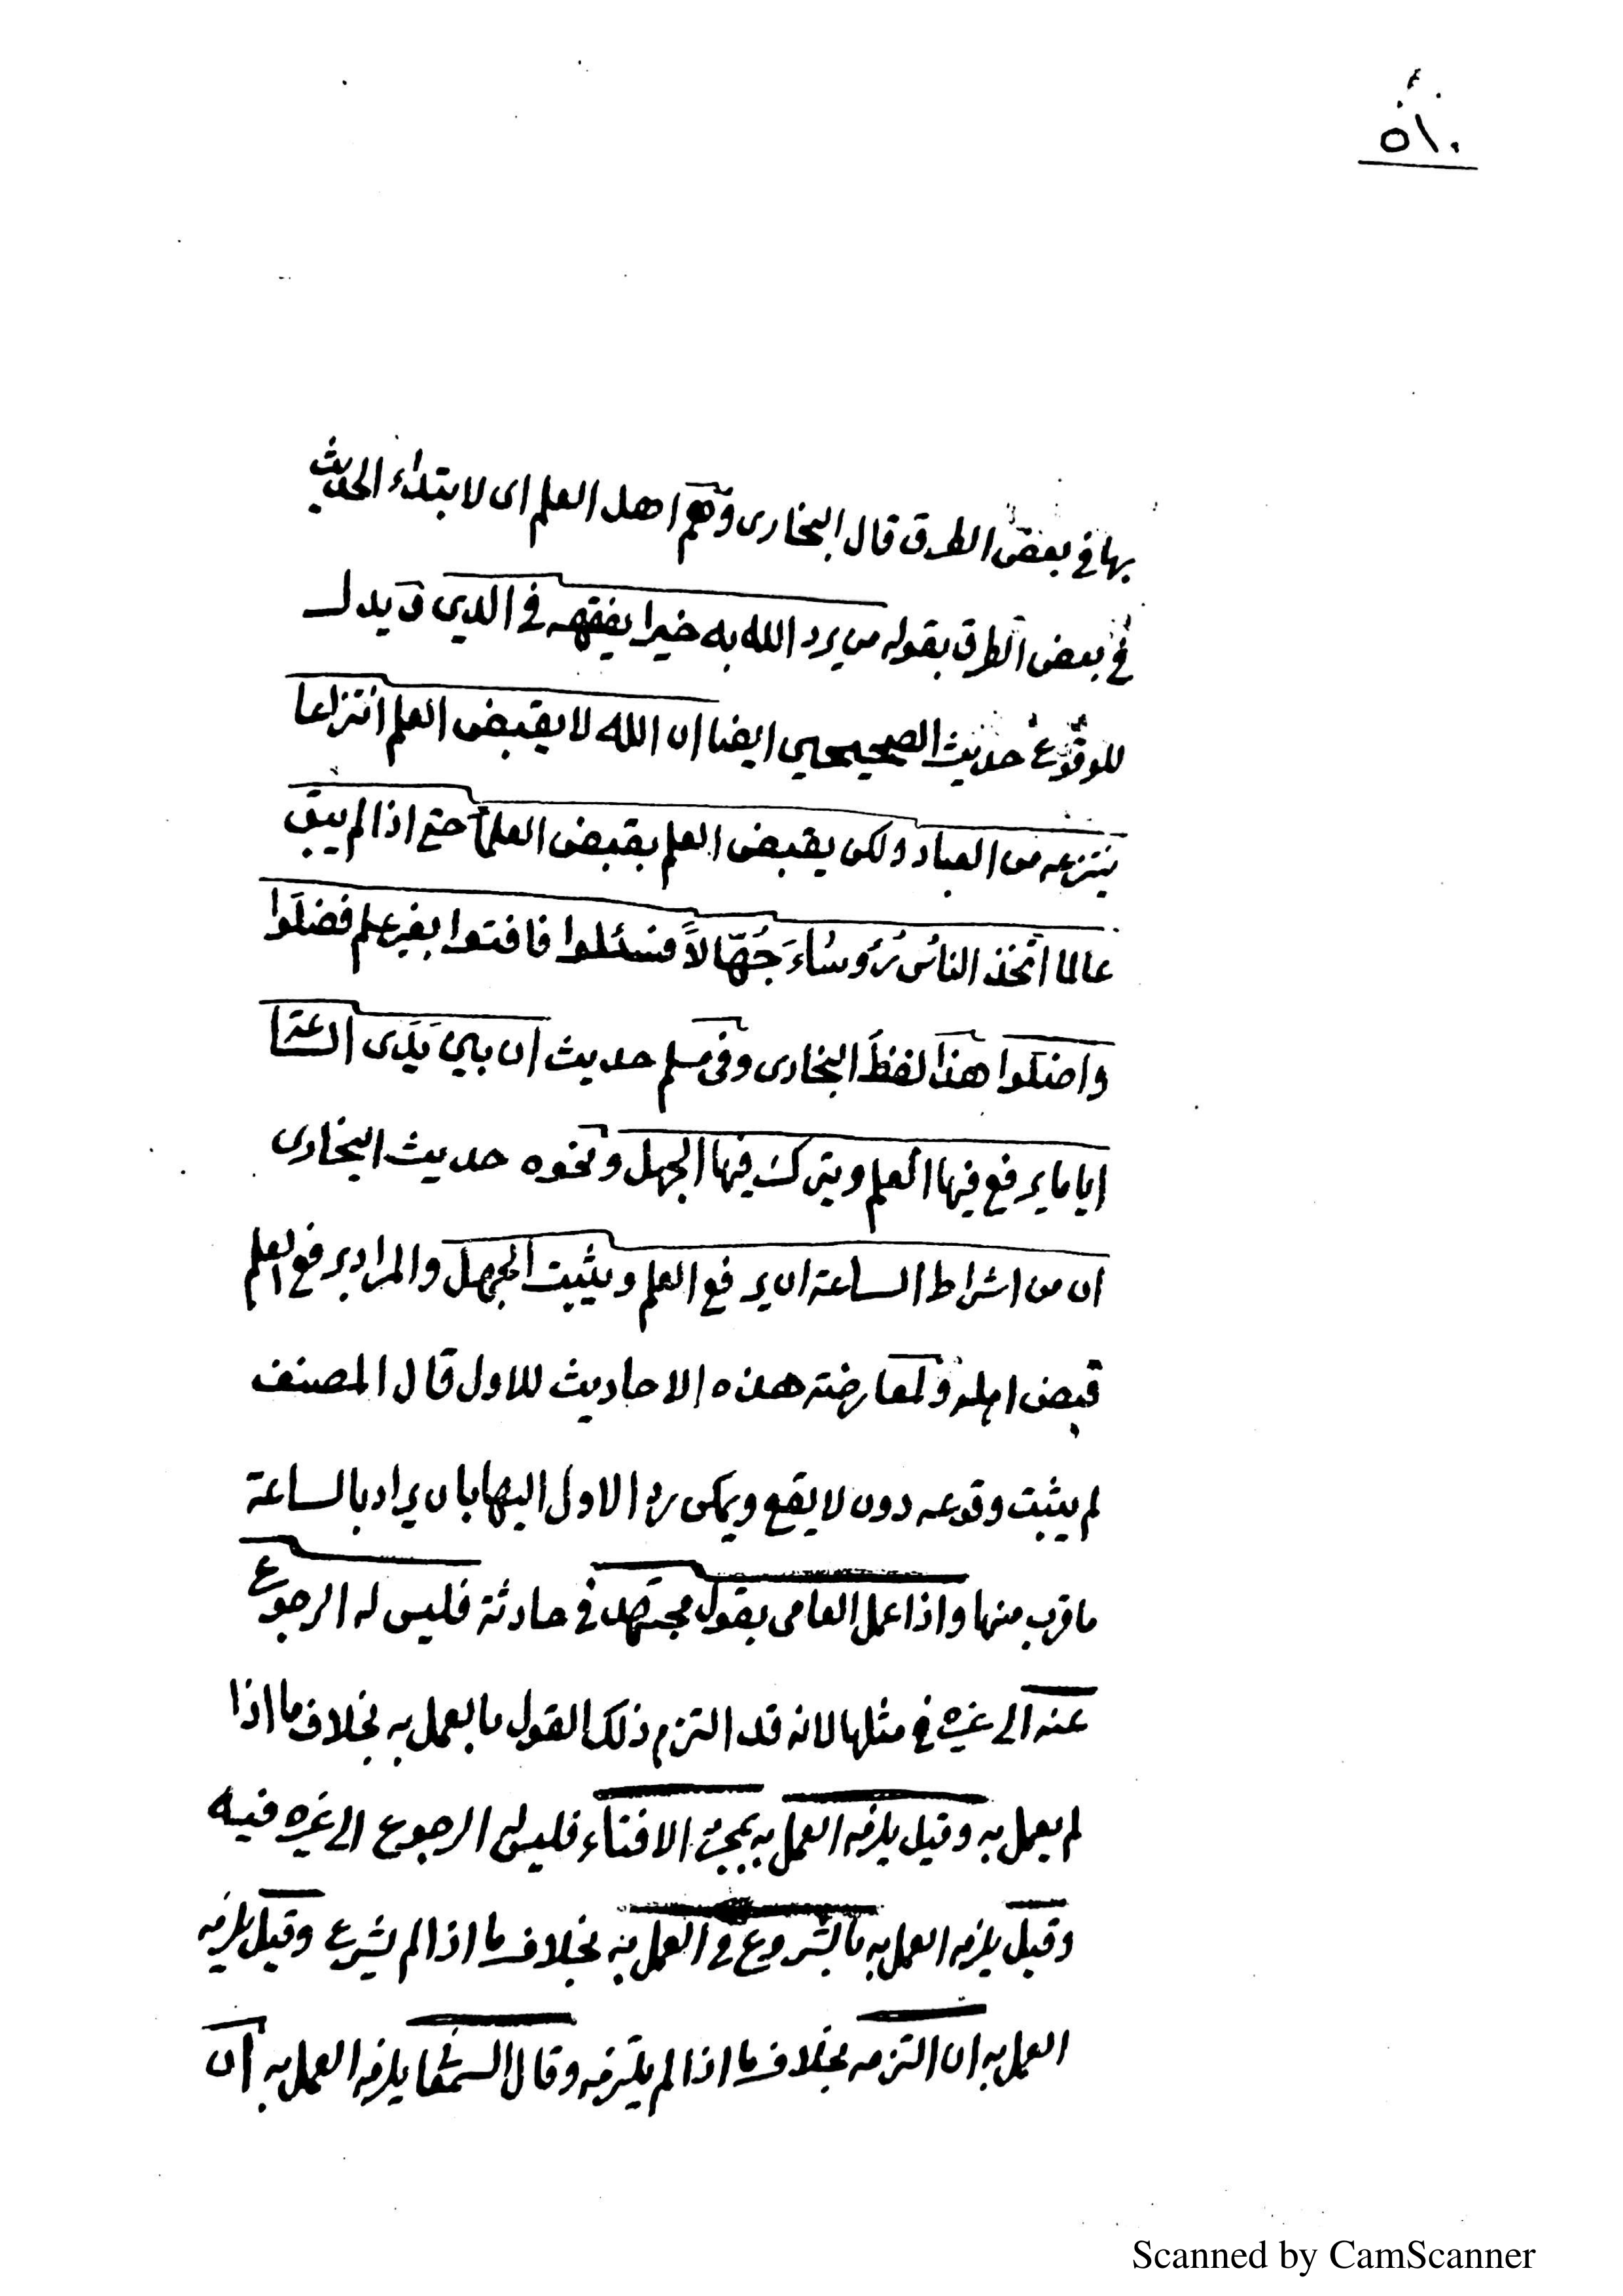 ٥١٠
بها في بعض الطرق قال البخارى وهم اهل العلم اى لابتداء الحديث
في بعض الطرق بقوله من يرد الله به خيرا يفقهه في الدين ويدل
للوقوع حديث الصحيحين ايضا ان الله لا يقبض العلم انتزاعا
ينتزعه من العباد ولكن يقبض العلم بقبض العلماء حتى اذا لم يبق
عالما اتخذ الناسُ رُؤوسًاءَ جُهّالاً فسئلوا فافتوا بغير علم فضلوا
واضلوا هذا لفظ البخارى وفى مسلم حديث ان بين يَدَى الساعة
اياما يرفع فيها العلم ويترك فيها الجهل ونحوه حديث البخارى
ان من اشراط الساعة ان يرفع العلم ويثبت الجهل والمراد برفع العلم
قبض اهله ولمعارضة هذه الاحاديث للاول قال المصنف
لم يثبت وقوعه دون لا يقع ويمكن رد الاول اليها بان يراد بالساعة
ما قرب منها واذا عمل العامى بقول مجتهد في حادثة فليس له الرجوع
عنه الى غيره في مثلها لانه قد التزم ذلك القول بالعمل به بخلاف ما اذا
لم يعمل به وقيل يلزمه العمل به بمجرد الافتاء فليس له الرجوع الى غيره فيه
وقيل يلزمه العمل به بالشروع في العمل به بخلاف ما اذا لم يشرع وقيل يلزمه
العمل به ان التزمه بخلاف ما اذا لم يلتزمه وقال السمعانى يلزمه العمل به ان
Scanned by CamScanner